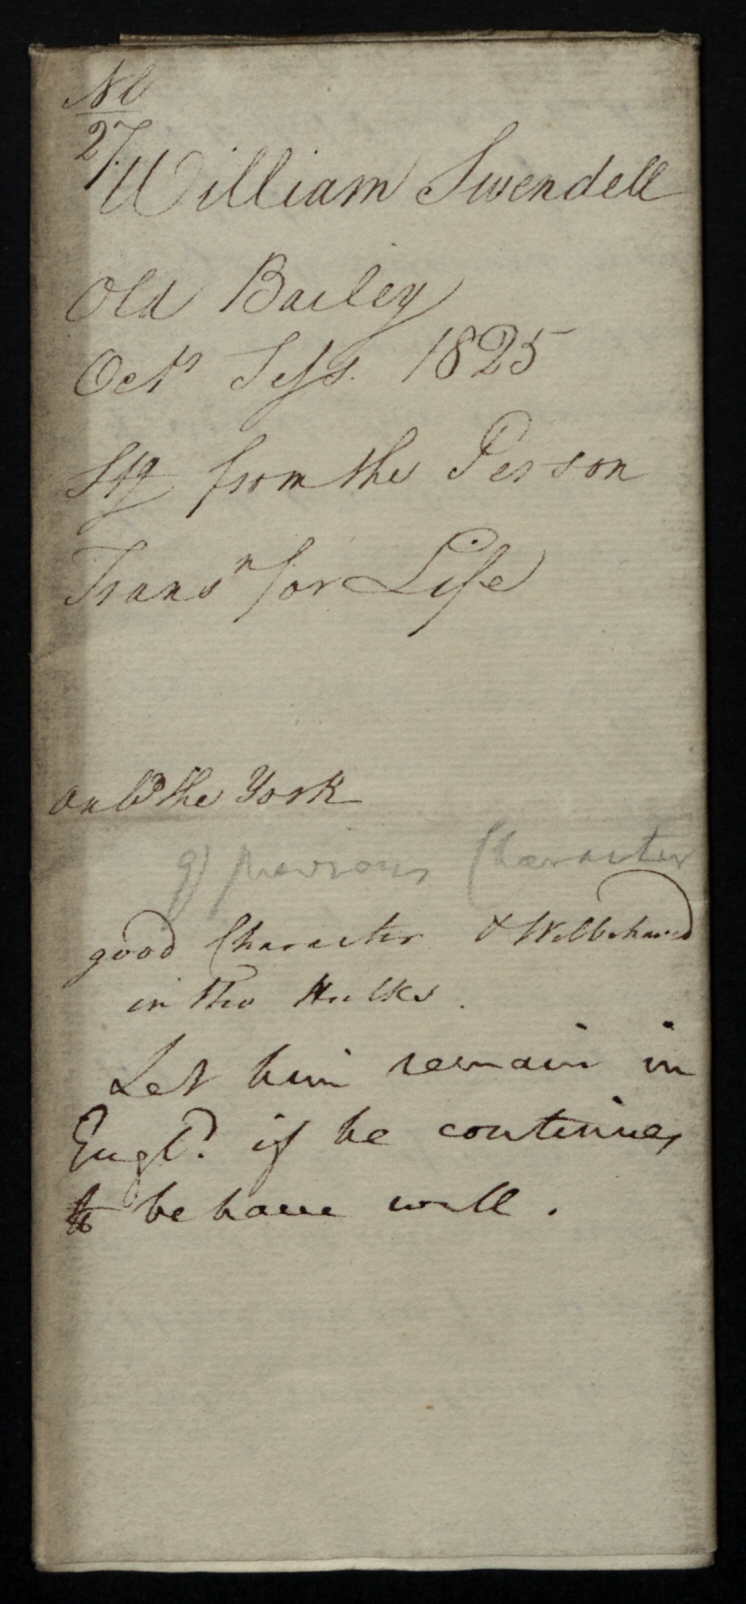 Nl
27
William Swendell
Old Bailey
Octr Sess. 1825
Stg from the Person
Transn for Life
on bd the York
gd previous Character
good Character & Wellbehaved
in the Hulks.
Let him remain in
Engld. if he continues
to behave well.